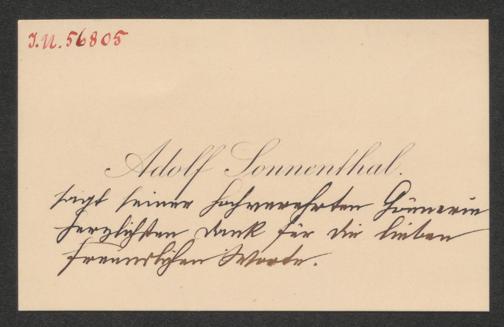 I.N. 56805
Adolf Sonnenthal.
sagt seiner hochverehrten Gönnerin
herzlichsten Dank für die lieben
freundlichen Worte.